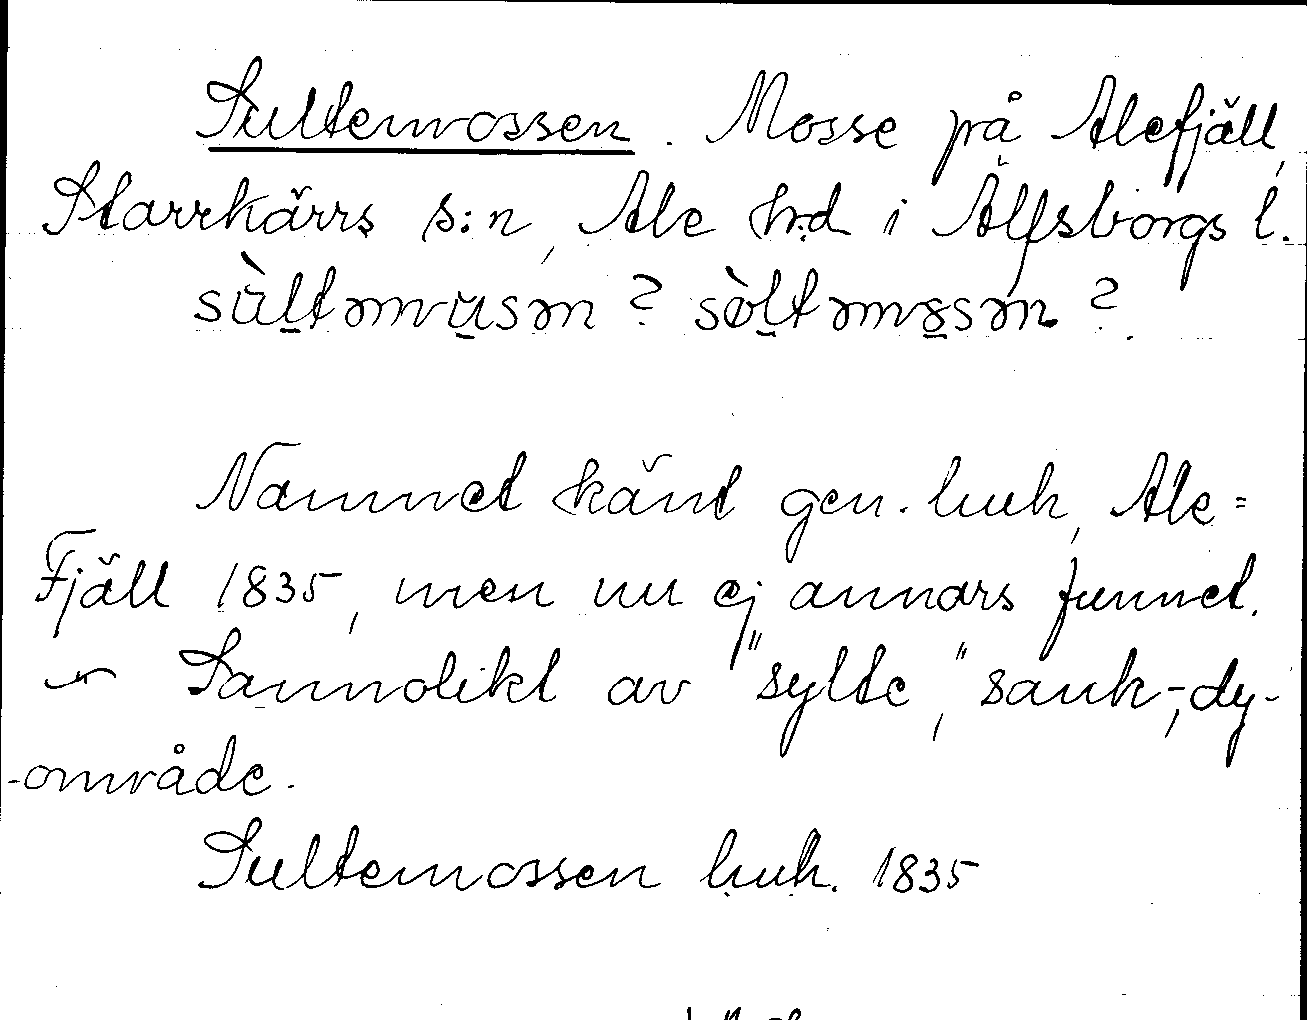 Sultemossen. Mosse på Alefjäll,
Starrkärrs s:n, Ale hrd i Älfsborgs l.
sùl̠təmu̠sən ? sòl̠təmo̠sən ?
Namnet känt gen. luk, Ale=
Fjäll 1835, men nu ej annars funnet.
~ Sannolikt av "sylte", sank-, dy-
-område.
Sultemossen luk. 1835